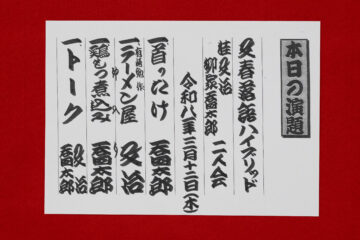 本日の演題
文春落語ハイブリッド
桂文治
柳家喬太郎 二人会
令和八年三月十二日(木)
一 首ったけ 喬太郎
一 ラーメン屋 文治
仲入り
一 鶏もつ煮込み 喬太郎
一 トーク 文治 喬太郎